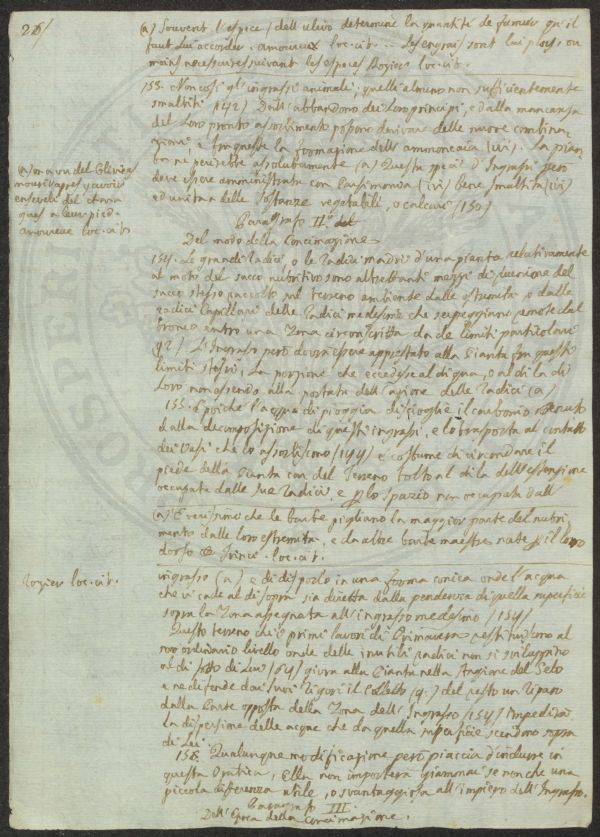 26/
(a) Souvent l'espece (dell'ulivo determine la quantité de fumier qu'il
faut lui accorder. amoureux loc. cit. ... Les engrais sont lui plus, ou
moins necessaires suivant les especes Rozier loc. cit.
153. Non così gl'ingrassi animali; quelli almeno non sufficientemente
smaltiti (142) Dall'abbandono dei loro principj, e dalla mancanza
del loro pronto assorbimento possono derivare delle nuove combina
zioni, e fra queste la formazione dell'ammoniaca (ivi). La pian
ta ne perirebbe assolutamente (a) Questa specie d'Ingrassi però
deve essere amministrata con Parsimonia (ivi) bene smaltita (ivi)
ed unita a delle sostanze vegetabili, o calcari (150)
(a) on a vu des Oliviers
mourir après y avoir
enseveli del
a leur pied.
amoureux loc. cit.
Paragrafo II.º
Del modo della Concimazione
154. Le grandi radici, o le radici madri d'una pianta relativamente
al moto del succo nutritivo sono altrettanti mezzi di riunione del
succo stesso raccolto sul terreno ambiente dalle estremità, o dalle
radici Capillari delle radici medesime che serpeggiano remote dal
tronco entro una Zona circonscritta da de limiti particolari
92) L'Ingrasso però dovrà essere apprestato alla Pianta fra questi
limiti stessi; La porzione che eccedesse al di qua, o al di là di
Loro non essendo alla portata dell'azione delle radici (a)
155. E poiche l'acqua di pioggia discioglie il carbonio
dalla decomposizione di questi ingrassi, e lo trasporta al contatto
dei vasi che lo assorbiscono (144) è costume di circondare il
piede della Pianta con del Terreno tolto al di là dell'estensione
occupata dalle sue radici, e lo spazio non occupata dall'
(a) È verissimo che le barbe pigliano la maggior parte del nutri
mento dalle loro estremità, e da altre barbe maestre nate il loro
dorso loc. cit.
Rozier loc. cit.
ingrasso (a) e di disporlo in una forma conica onde l'acqua
che vi cade al di sopra sia diretta dalla pendenza di quella superficie
sopra la Zona assegnata all'ingrasso medesimo (154)
Questo terreno che i primi lavori di Primavera restituiscono al
suo ordinario livello onde delle inutili radici non si sviluppino
al di sotto di Lui (54) giova alla Pianta nella Stagione del Gelo
e ne difende dai suoi rigori il Colletto (9.) del resto un riparo
dalla Parte opposta della Zona dell'Ingrasso (154) impedirà
la dispersione delle acque che da quella superficie scendono sopra
di Lei
156. Qualunque modificazione però piaccia d'indurre in
questa Pratica, Ella non importerà giammai se non che una
piccola differenza utile, o svantaggiosa all'impiego dell'Ingrasso.
Paragrafo III.
Dell'Epoca della Concimazione.